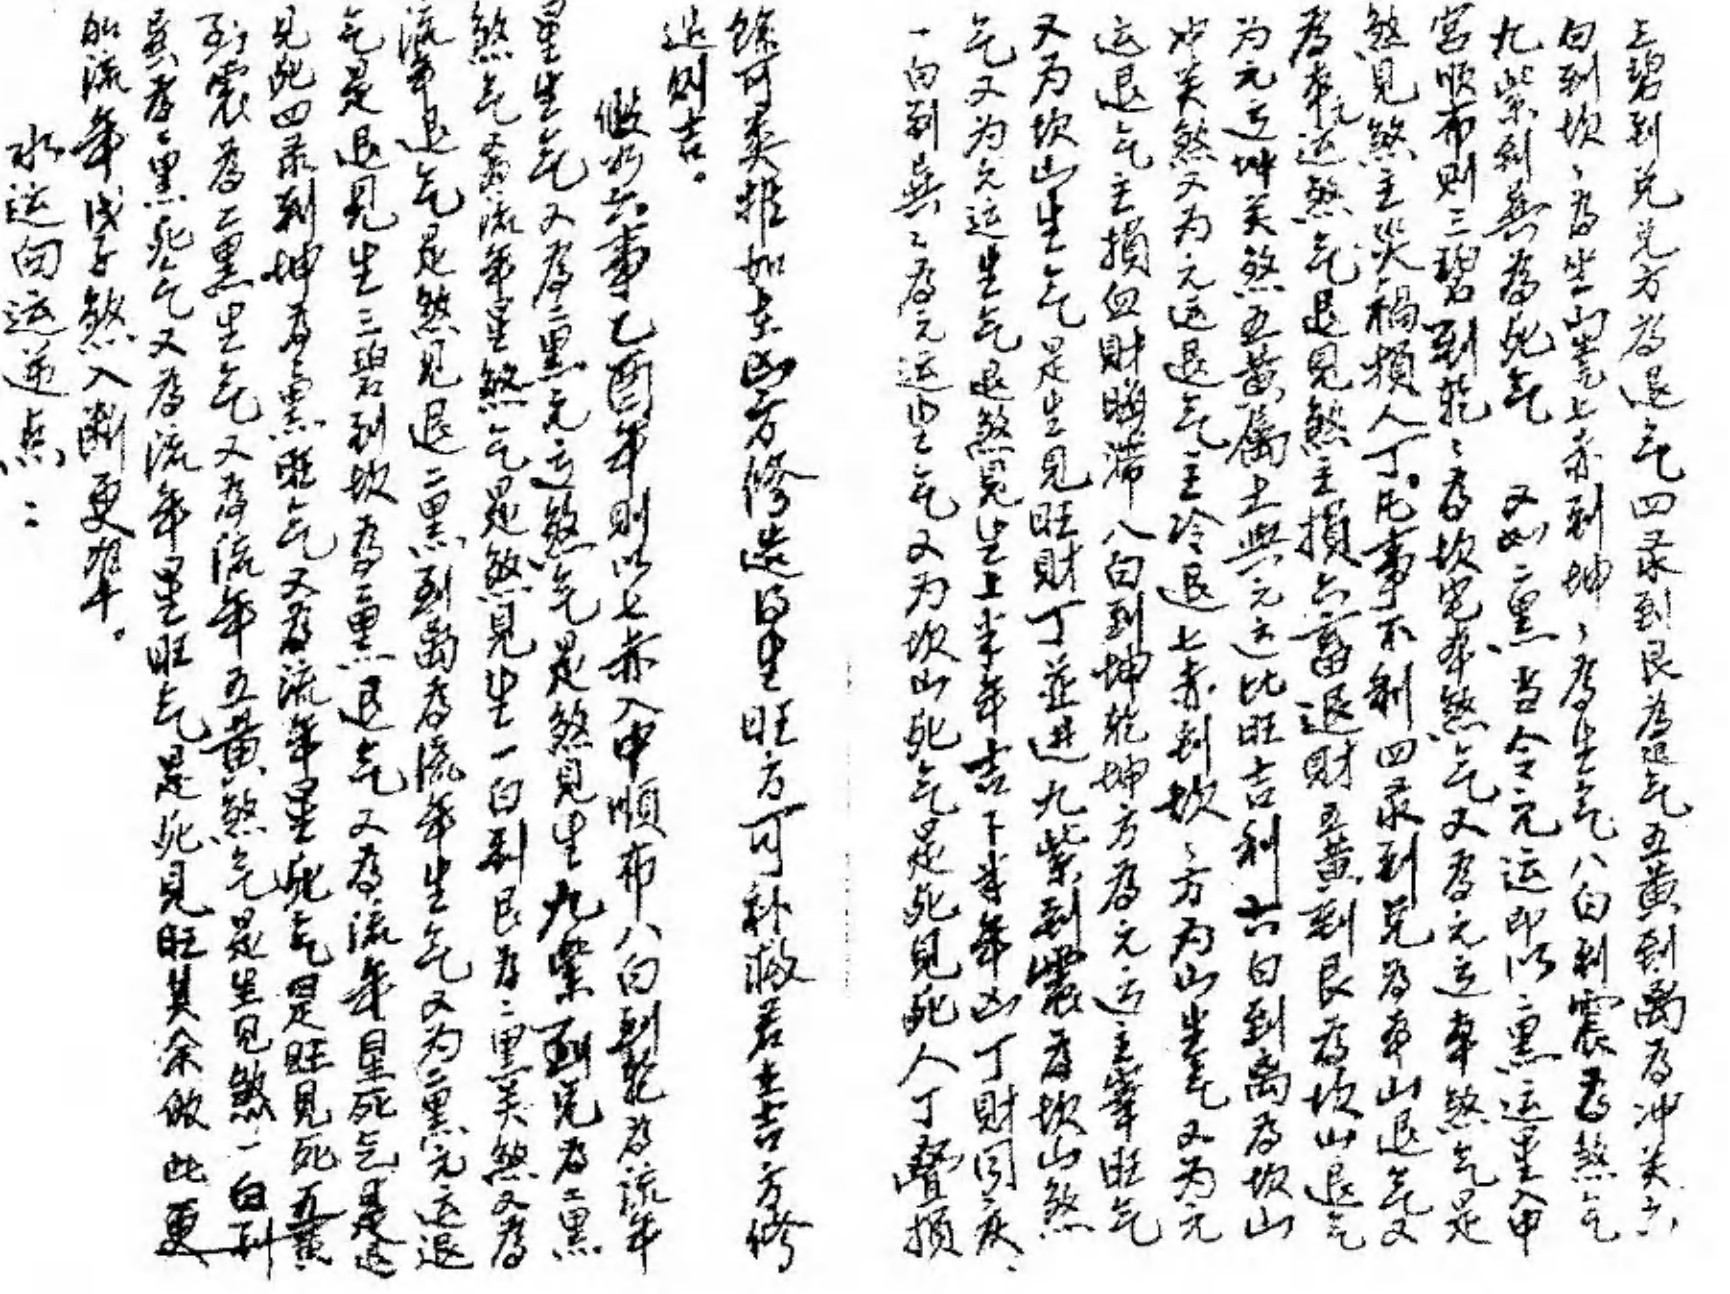 三碧到兑兑方为退气四录到艮为退气五黄到离为冲关六
白到坎、为坐山星七赤到坤、为生气八白到震为煞气
九紫到巽为死气 又如二黑当令元运即以二黑运星入中
宫顺布则三碧到乾、为坎宅本煞气又为元运本煞气是
煞見煞主災禍損人丁。凡事不利四录到兑为本山退气又
为本元运煞气退見煞主損六畜退财五黄到艮为坎山退气
为元运坤关煞五黄属土與元运比旺吉利六白到离为坎山
冲关煞又为元运退气主冷退七赤到坎、方为山生气又为元
运退气主損血财晦滞八白到坤乾坤方为元运主宰旺气
又为坎山生气是生見旺财丁並进九紫到震为坎山煞
气又为元运生气退煞見生上半年吉下半年凶丁财同庆、
一白到巽、为元运生气又为坎山死气是死見死人丁疊損
餘可类推如东凶方修造得生旺方可补救若去吉方修
造则吉。
做如六事乙酉年则以七赤入中顺布八白到乾为流年
星生气又为二黑元运煞气是煞見生九紫到兑为二黑
煞气又为流年星煞气是煞見生一白到艮为二黑关煞又为
流年退气是煞見退二黑到离为流年生气又为二黑元运退
气是退見生三碧到坎为二黑退气又为流年星死气是退
見死四录到坤为二黑旺气又为流年星死气是旺見死五黄
到震为二黑生气又为流年五黄煞气是生見煞一白到
巽为二黑死气又为流年星旺气是死見旺其余做此更
如流年戊子煞入 更準。
水运向运逆点：